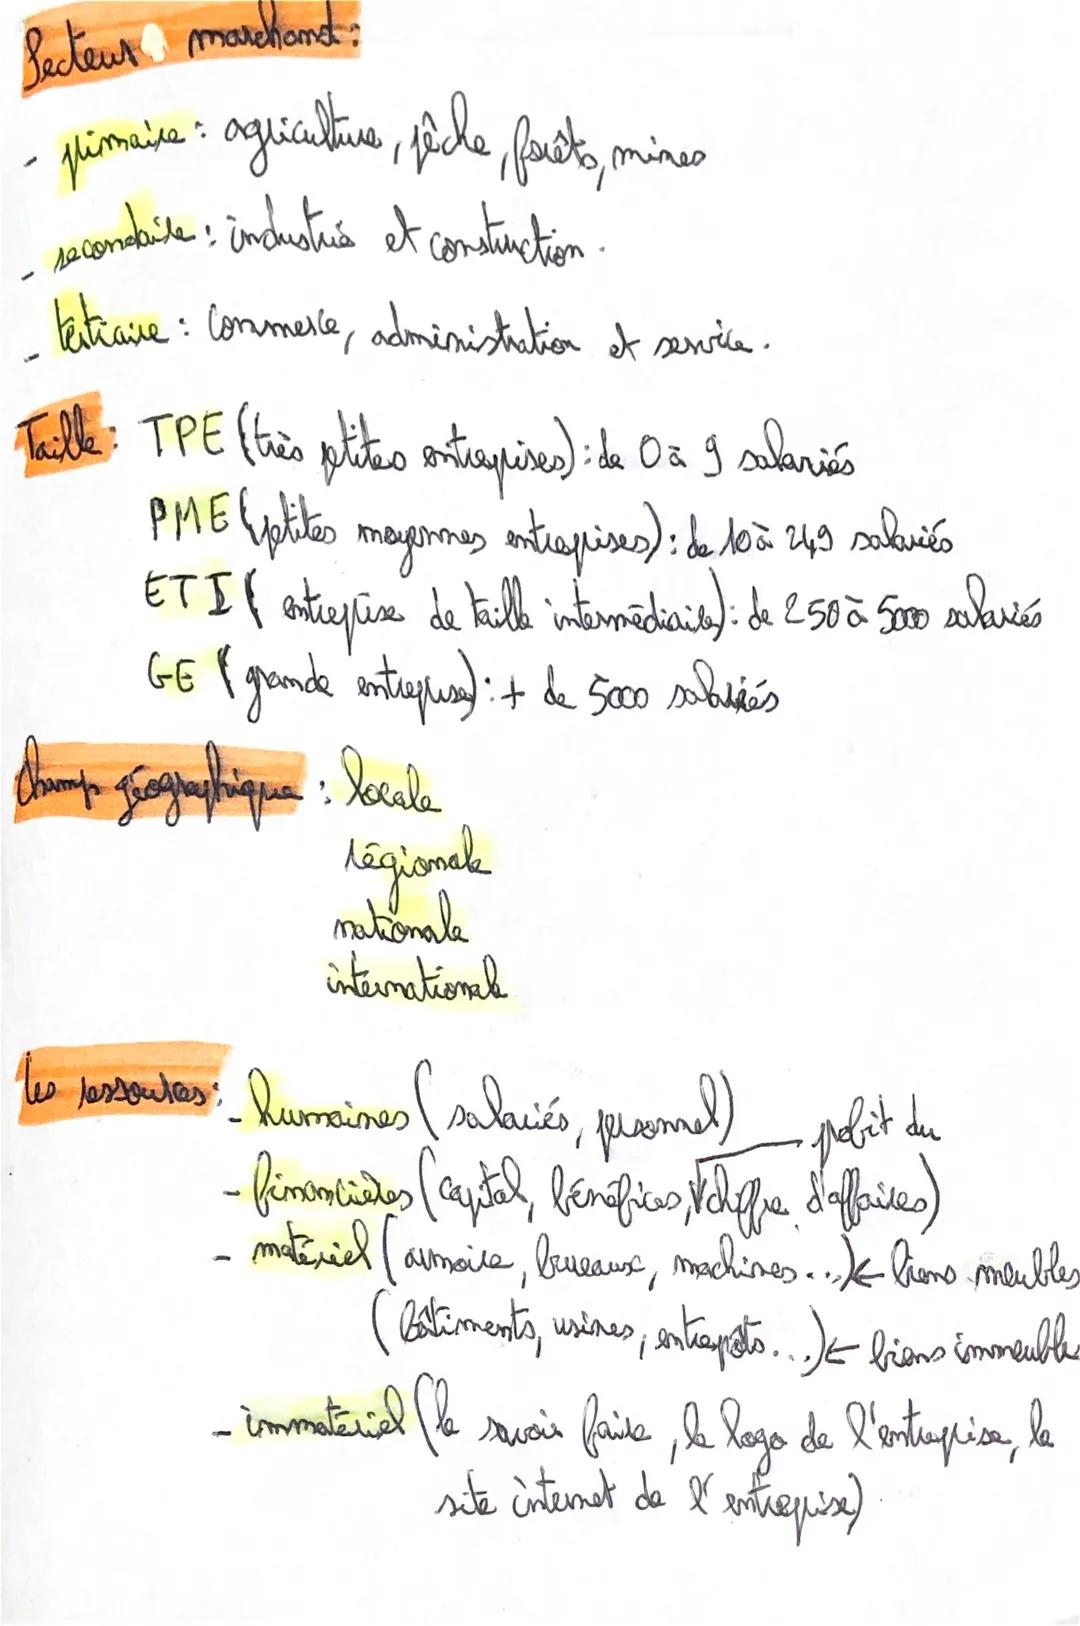 Secteur marchand :
- primaire : agriculture, pêche, forêts, mines
- secondaire : industrie et construction.
- tertiaire : commerce, administration et service.
Taille : TPE (très petites entreprises) : de 0 à 9 salariés
PME (petites moyennes entreprises) : de 10 à 249 salariés
ETI (entreprise de taille intermédiaire) : de 250 à 5000 salariés
GE (grande entreprise) : + de 5000 salariés
champ géographique : locale
régionale
nationale
internationale
les ressources :
- humaines (salariés, personnel)
profit du
- financières (capital, bénéfices, chiffre d'affaires)
- matériel (armoire, bureaux, machines...) ← biens meubles
(bâtiments, usines, entrepôts...) ← biens immeuble
- immatériel (le savoir faire, le logo de l'entreprise, le
site internet de l'entreprise).